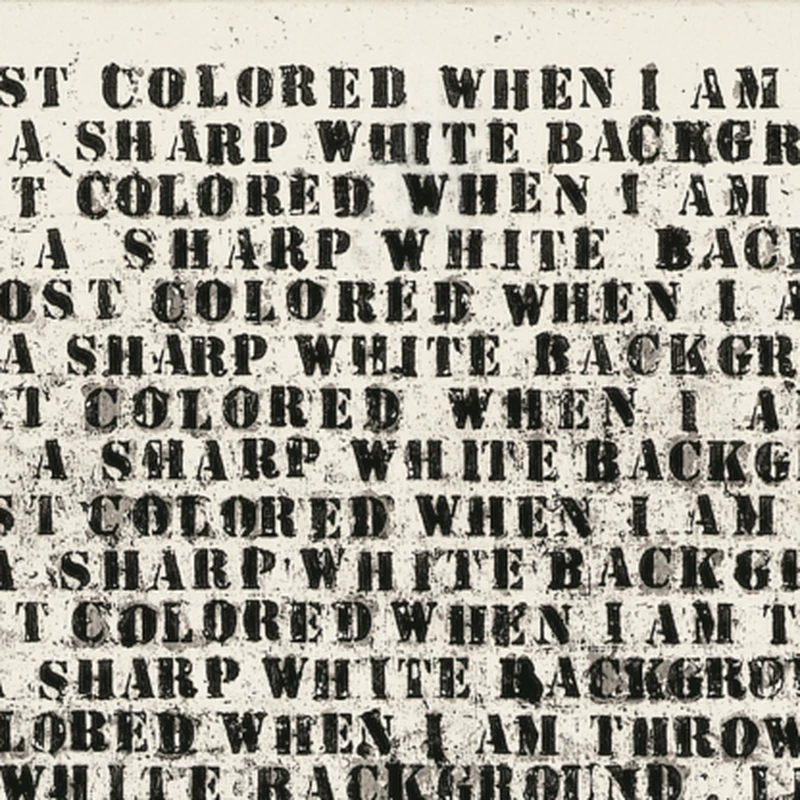 ST COLORED WHEN I AM
A SHARP WHITE BACKGR
T COLORED WHEN I AM
A SHARP WHITE BACK
OST COLORED WHEN I A
A SHARP WHITE BACKGR
T COLORED WHEN I A
A SHARP WHITE BACKG
ST COLORED WHEN I AM
A SHARP WHITE BACKGR
T COLORED WHEN I AM T
SHARP WHITE BACKGROU
LORED WHEN I AM THROW
WHITE BACKGROUND. I